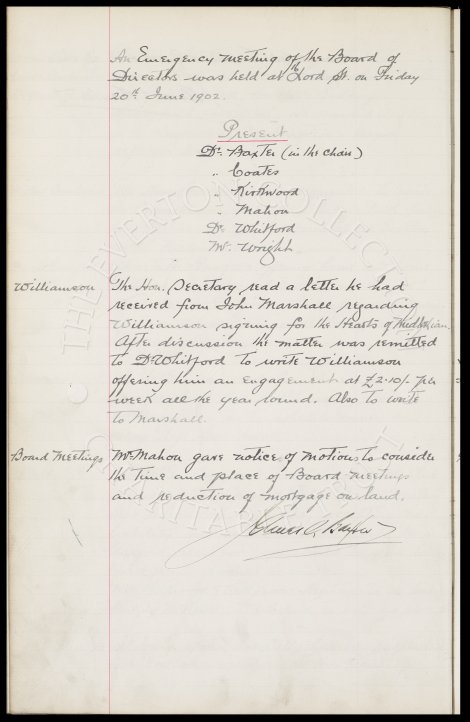 An Emergency meeting of the Board of
Directors was held at Lord St. on Friday
20th June 1902.
Present
Dr. Baxter (in the chair)
" Coates
" Kirkwood
" Mahon
Dr. Whitford
Mr. Wright
Williamson
The Hon. Secretary read a letter he had
received from John Marshall regarding
Williamson signing for the Hearts of Midlothian.
After discussion the matter was remitted
to Dr Whitford to write Williamson
offering him an engagement at £2.10/- per
week all the year round. Also to write
to Marshall.
Board Meetings
Mr Mahon gave notice of motions to consider
the time and place of Board meetings
and reduction of mortgage on land.
James C. Baxter
THE EVERTON COLLECTION
CHARITABLE TRUST